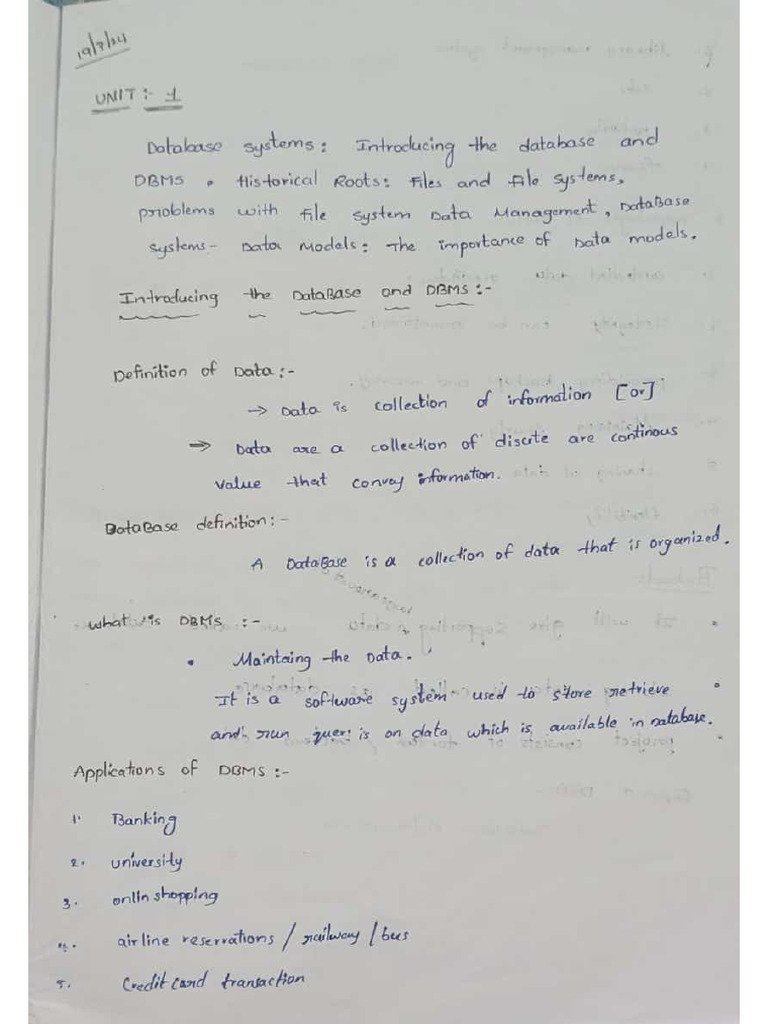 19/7/24
UNIT :- 1
Database systems: Introducing the database and
DBMS . Historical Roots: Files and file systems,
problems with file system Data Management, DataBase
systems - Data Models: The importance of Data models.
Introducing the DataBase and DBMS :-
Definition of Data :-
→ Data is collection of information [or]
⇒ Data are a collection of discute are continous
value that convey information.
DataBase definition :-
A DataBase is a collection of data that is organized.
what is DBMS :-
• Maintaing the Data.
It is a software system used to store retrieve
and run queri is on data which is available in Database.
Applications of DBMS :-
1. Banking
2. university
3. onlin shopping
4. airline reservations / railway / bus
5. Credit card transaction